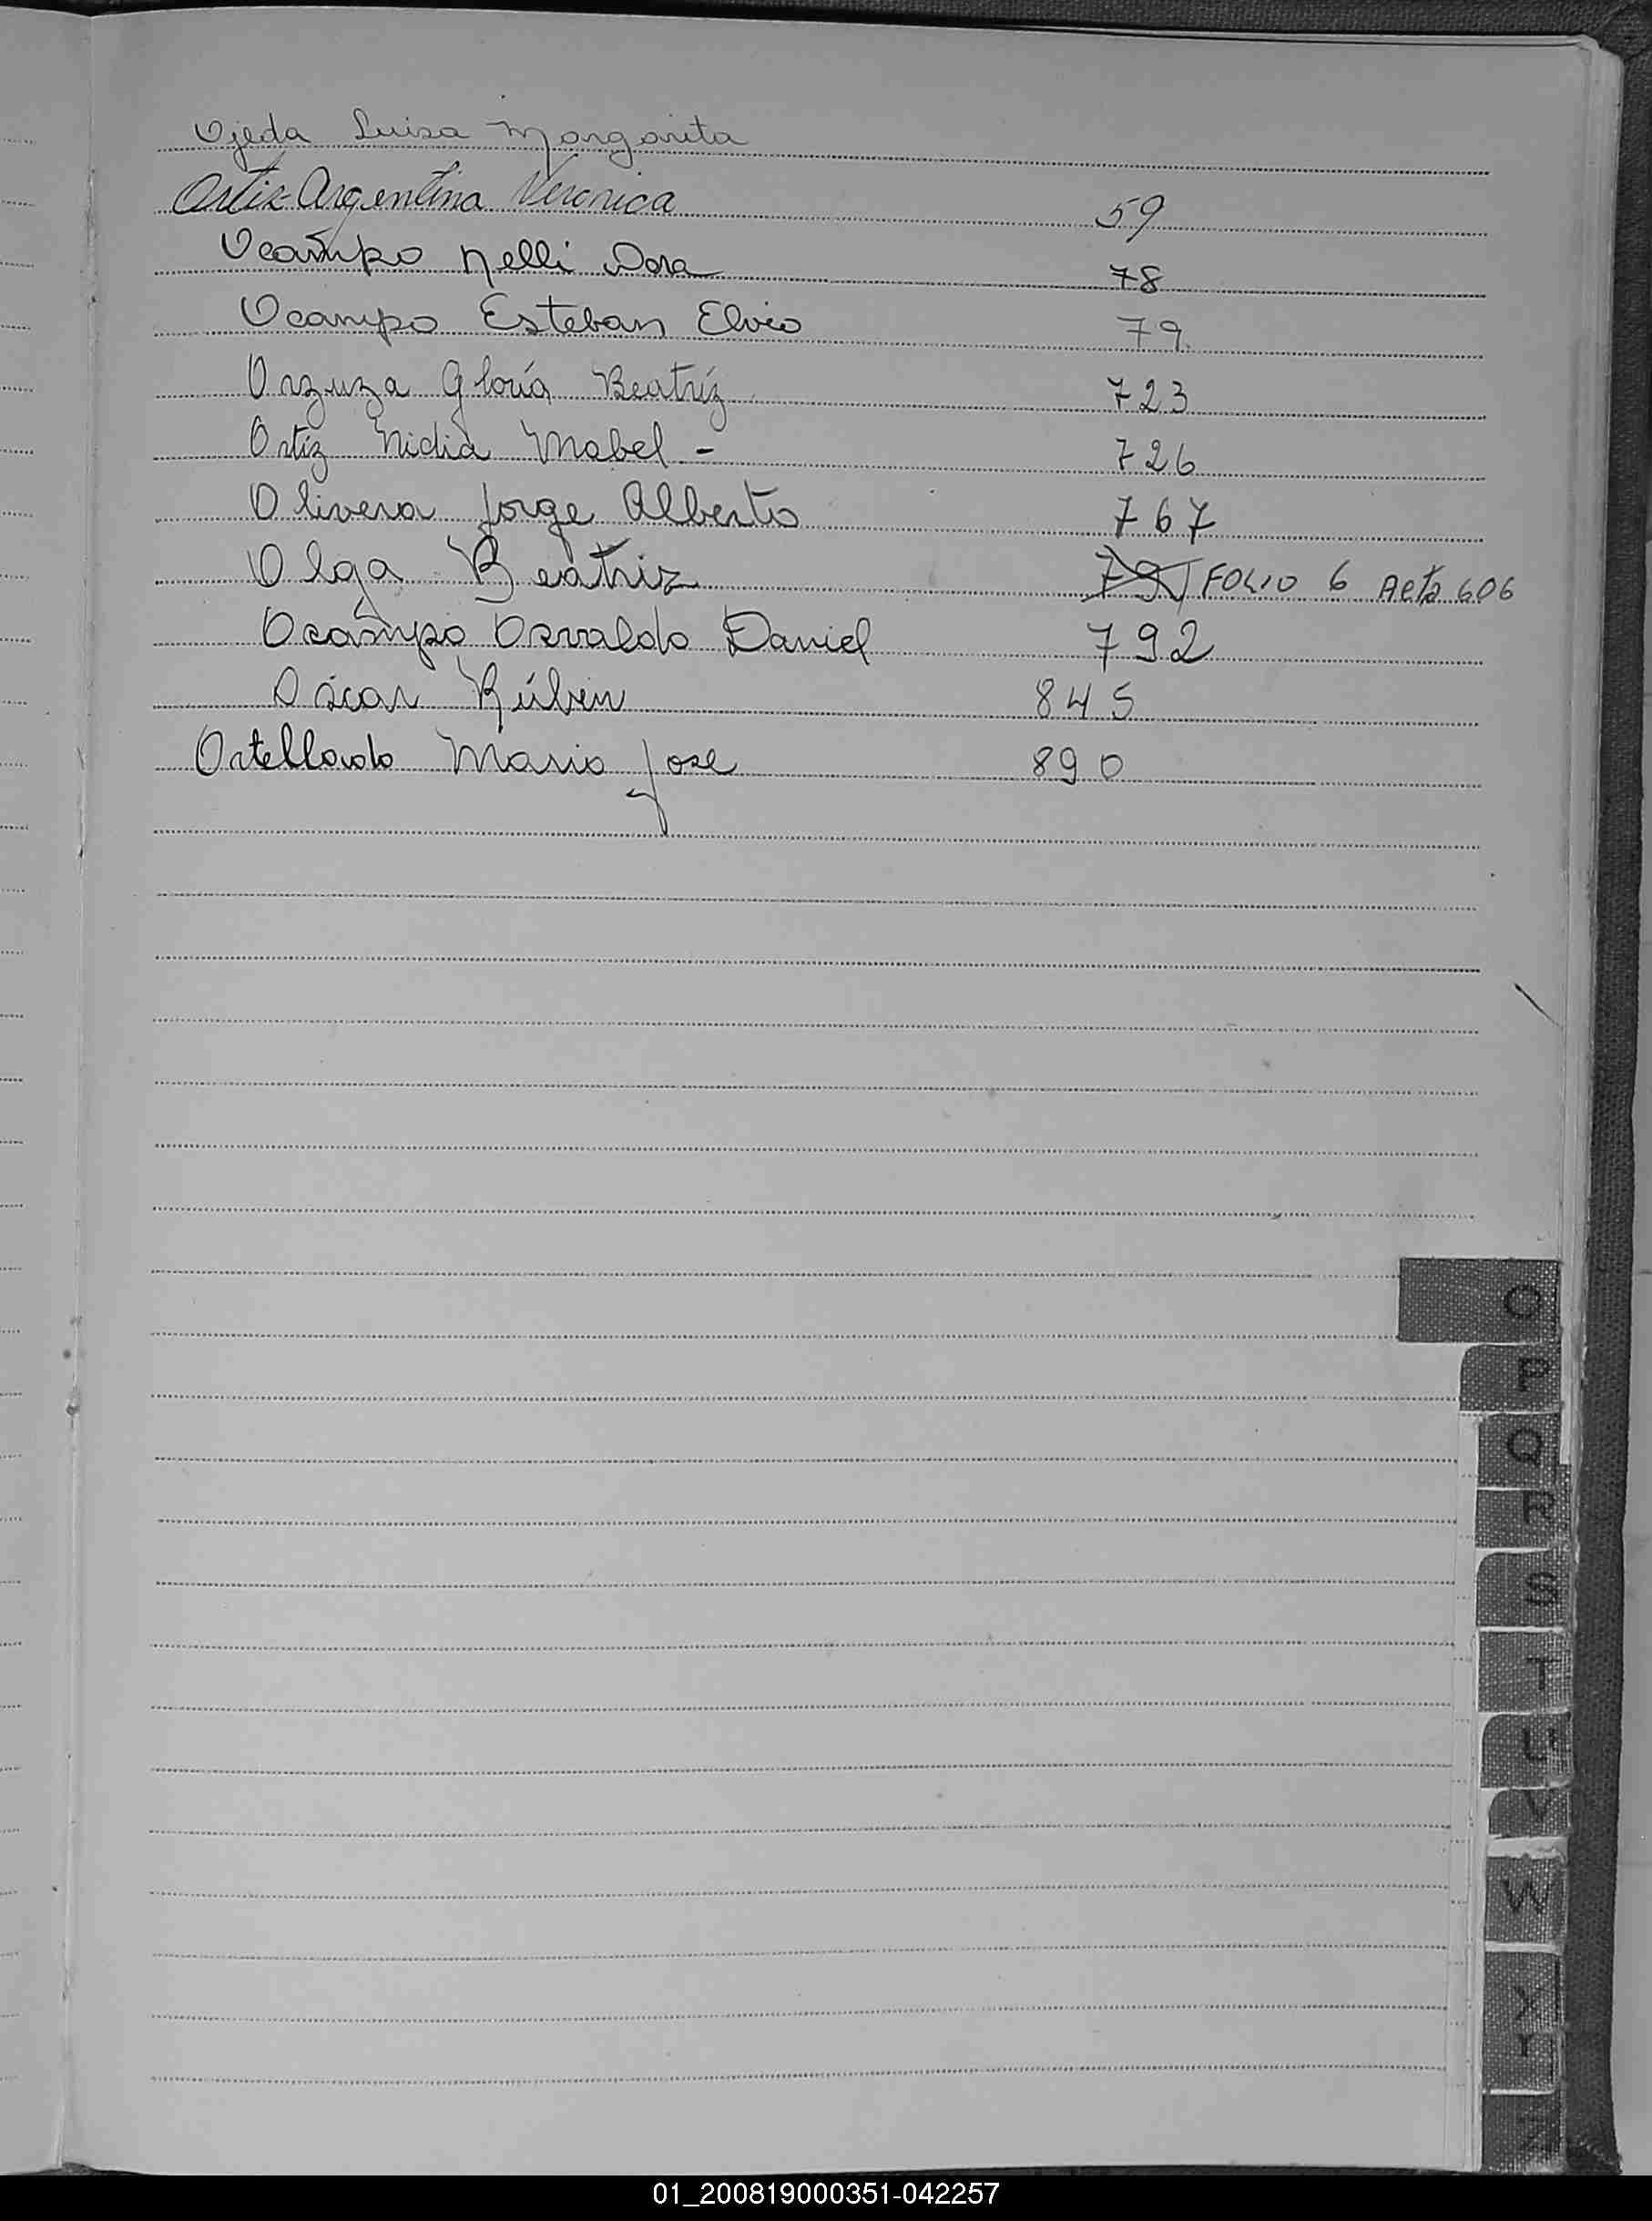 Ojeda Luisa Margarita
Ortiz Argentina Veronica 59
Ocampo Nelli Dora 78
Ocampo Esteban Elvio 79
Orzuza Gloria Beatríz 723
Ortíz Nidia Mabel - 726
Olivera Jorge Alberto 767
Olga Beatriz 791 FOLIO 6 Acta 606
Ocampo Osvaldo Daniel 792
Oscar Rúben 845
Ortellado Mario Jose 890
O
P
Q
R
S
T
U
V
W
X
Y
Z
01_200819000351-042257